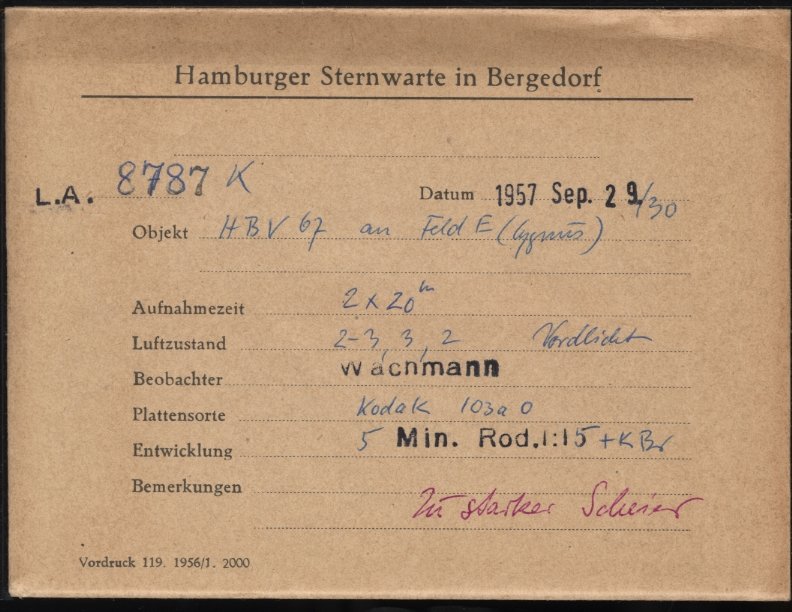 Hamburger Sternwarte in Bergedorf
L.A. 8787 K
Datum 1957 Sep. 29./30
Objekt HBV 67 an Feld E (Cygnus)
Aufnahmezeit 2 x 20 m
Luftzustand 2-3, 3, 2 Nordlicht
Beobachter Wachmann
Plattensorte Kodak 103a O
Entwicklung 5 Min. Rod. 1:15 + KBr
Bemerkungen
Zu starker Schleier
Vordruck 119. 1956/1. 2000